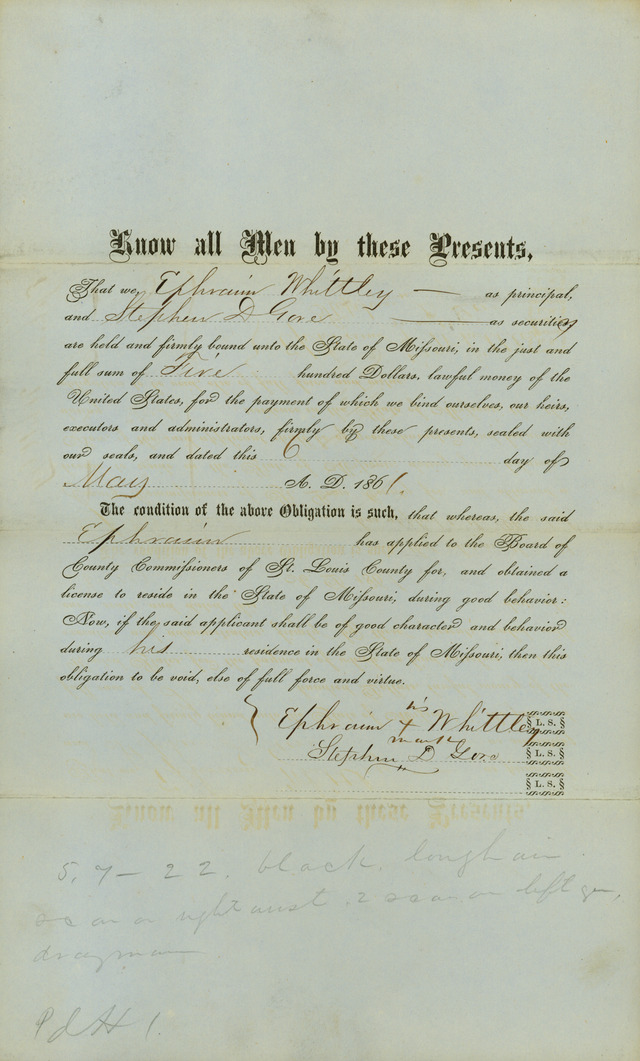 Know all Men by these Presents,
That we, Ephraim Whittley — as principal,
and Stephen D Gore — as securities
are held and firmly bound unto the State of Missouri, in the just and
full sum of Five hundred Dollars, lawful money of the
United States, for the payment of which we bind ourselves, our heirs,
executors and administrators, firmly by these presents, sealed with
our seals, and dated this 6 day of
May A. D. 1861.
The condition of the above Obligation is such, that whereas, the said
Ephraim has applied to the Board of
County Commissioners of St. Louis County for, and obtained a
license to reside in the State of Missouri, during good behavior:
Now, if the said applicant shall be of good character and behavior
during his residence in the State of Missouri, then this
obligation to be void, else of full force and virtue.
his
Ephraim + Whittley § L. S. §
mark
Stephen D Gore § L. S. §
§ L. S. §
5.7 – 22. black. long hair
scar on right wrist. 2 scar on left
drayman